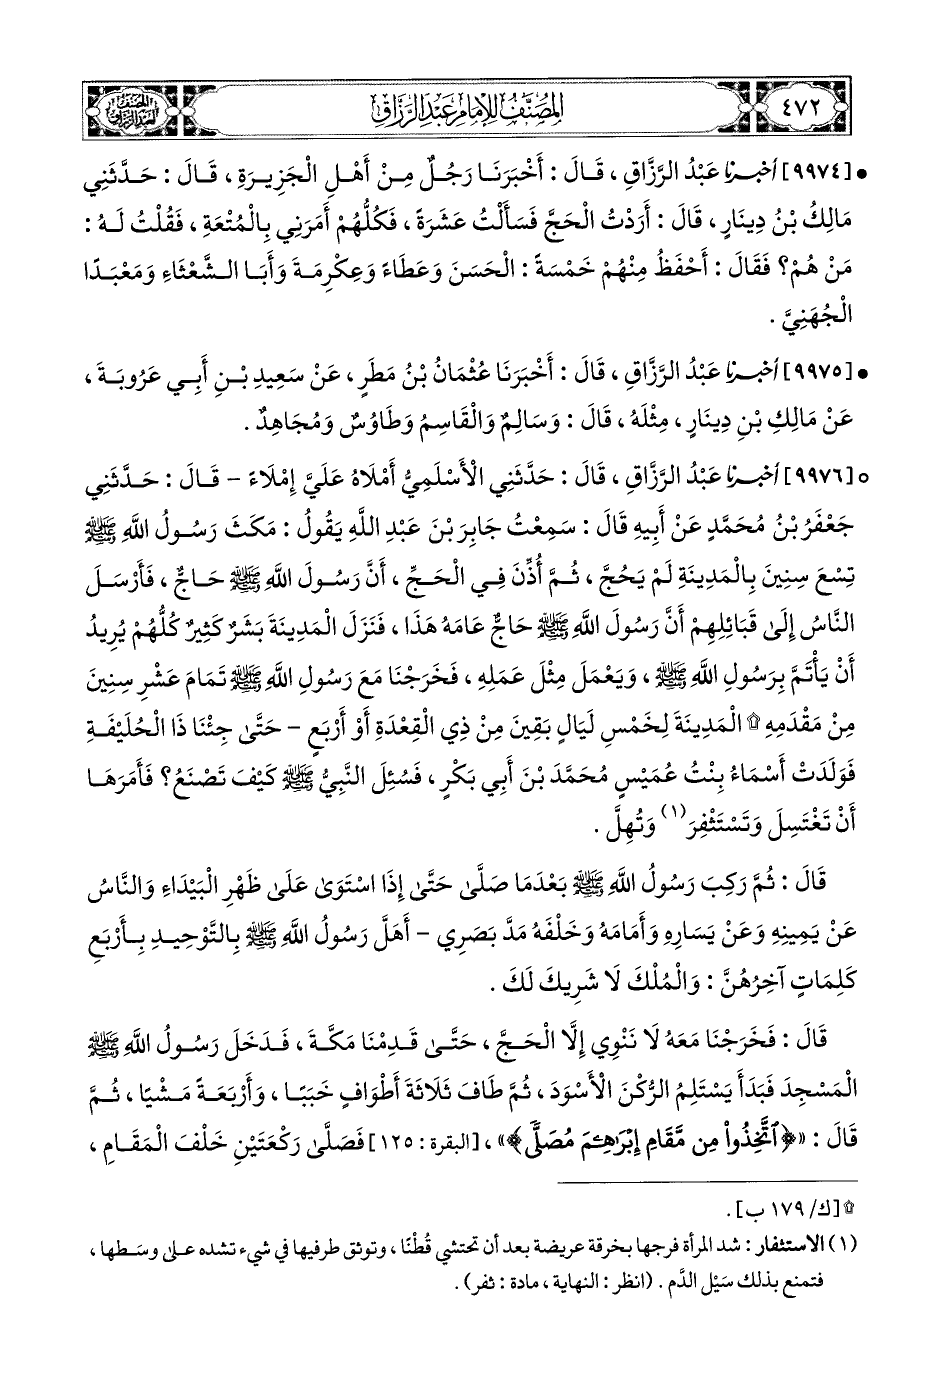 ٤٧٢
المصنف للإمام عبد الرزاق
• [٩٩٧٤] أخبرنا عَبْدُ الرَّزَّاقِ ، قَالَ : أَخْبَرَنَا رَجُلٌ مِنْ أَهْلِ الْجَزِيرَةِ ، قَالَ : حَدَّثَنِي
مَالِكُ بْنُ دِينَارٍ ، قَالَ : أَرَدْتُ الْحَجَّ فَسَأَلْتُ عَشَرَةً ، فَكُلُّهُمْ أَمَرَنِي بِالْمُتْعَةِ ، فَقُلْتُ لَهُ :
مَنْ هُمْ؟ فَقَالَ : أَحْفَظُ مِنْهُمْ خَمْسَةً : الْحَسَنَ وَعَطَاءً وَعِكْرِمَةَ وَأَبَا الشَّعْثَاءِ وَمَعْبَدًا
الْجُهَنِيَّ .
• [٩٩٧٥] أخبرنا عَبْدُ الرَّزَّاقِ ، قَالَ : أَخْبَرَنَا عُثْمَانُ بْنُ مَطَرٍ ، عَنْ سَعِيدِ بْنِ أَبِي عَرُوبَةَ ،
عَنْ مَالِكِ بْنِ دِينَارٍ ، مِثْلَهُ ، قَالَ : وَسَالِمٌ وَالْقَاسِمُ وَطَاوُسٌ وَمُجَاهِدٌ .
○ [٩٩٧٦] أخبرنا عَبْدُ الرَّزَّاقِ ، قَالَ : حَدَّثَنِي الْأَسْلَمِيُّ أَمْلَاهُ عَلَيَّ إِمْلَاءً - قَالَ : حَدَّثَنِي
جَعْفَرُ بْنُ مُحَمَّدٍ عَنْ أَبِيهِ قَالَ : سَمِعْتُ جَابِرَ بْنَ عَبْدِ اللَّهِ يَقُولُ : مَكَثَ رَسُولُ اللَّهِ ﷺ
تِسْعَ سِنِينَ بِالْمَدِينَةِ لَمْ يَحُجَّ ، ثُمَّ أُذِّنَ فِي الْحَجِّ ، أَنَّ رَسُولَ اللَّهِ ﷺ حَاجٌّ ، فَأَرْسَلَ
النَّاسُ إِلَىٰ قَبَائِلِهِمْ أَنَّ رَسُولَ اللَّهِ ﷺ حَاجٌّ عَامَهُ هَذَا ، فَنَزَلَ الْمَدِينَةَ بَشَرٌ كَثِيرٌ كُلُّهُمْ يُرِيدُ
أَنْ يَأْتَمَّ بِرَسُولِ اللَّهِ ﷺ ، وَيَعْمَلَ مِثْلَ عَمَلِهِ ، فَخَرَجْنَا مَعَ رَسُولِ اللَّهِ ﷺ تَمَامَ عَشْرِ سِنِينَ
مِنْ مَقْدَمِهِ ۩ الْمَدِينَةَ لِخَمْسِ لَيَالٍ بَقِينَ مِنْ ذِي الْقِعْدَةِ أَوْ أَرْبَعٍ - حَتَّىٰ جِئْنَا ذَا الْحُلَيْفَةِ
فَوَلَدَتْ أَسْمَاءُ بِنْتُ عُمَيْسٍ مُحَمَّدَ بْنَ أَبِي بَكْرٍ ، فَسُئِلَ النَّبِيُّ ﷺ كَيْفَ تَصْنَعُ؟ فَأَمَرَهَا
أَنْ تَغْتَسِلَ وَتَسْتَثْفِرَ(١) وَتُهِلَّ .
قَالَ : ثُمَّ رَكِبَ رَسُولُ اللَّهِ ﷺ بَعْدَمَا صَلَّى حَتَّىٰ إِذَا اسْتَوَىٰ عَلَىٰ ظَهْرِ الْبَيْدَاءِ وَالنَّاسُ
عَنْ يَمِينِهِ وَعَنْ يَسَارِهِ وَأَمَامَهُ وَخَلْفَهُ مَدَّ بَصَرِي - أَهَلَّ رَسُولُ اللَّهِ ﷺ بِالتَّوْحِيدِ بِأَرْبَعِ
كَلِمَاتٍ آخِرُهُنَّ : وَالْمُلْكَ لَا شَرِيكَ لَكَ .
قَالَ : فَخَرَجْنَا مَعَهُ لَا نَنْوِي إِلَّا الْحَجَّ ، حَتَّىٰ قَدِمْنَا مَكَّةَ ، فَدَخَلَ رَسُولُ اللَّهِ ﷺ
الْمَسْجِدَ فَبَدَأَ يَسْتَلِمُ الرُّكْنَ الْأَسْوَدَ ، ثُمَّ طَافَ ثَلَاثَةَ أَطْوَافٍ خَبَبًا ، وَأَرْبَعَةً مَشْيًا ، ثُمَّ
قَالَ : «﴿ٱتَّخِذُواْ مِن مَّقَامِ إِبْرَٰهِـۧمَ مُصَلًّى﴾» ، [البقرة : ١٢٥] فَصَلَّىٰ رَكْعَتَيْنِ خَلْفَ الْمَقَامِ ،
۩ [ك/ ١٧٩ ب] .
(١) الاستثفار : شد المرأة فرجها بخرقة عريضة بعد أن تحتشي قُطْنًا ، وتوثق طرفيها في شيء تشده على وسطها ،
فتمنع بذلك سَيْل الدَّم . (انظر : النهاية ، مادة : ثفر) .